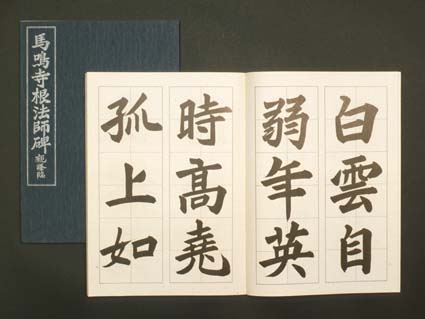 馬鳴寺根法師碑
観峰臨
白雲自
弱年英
時高堯
孤上如